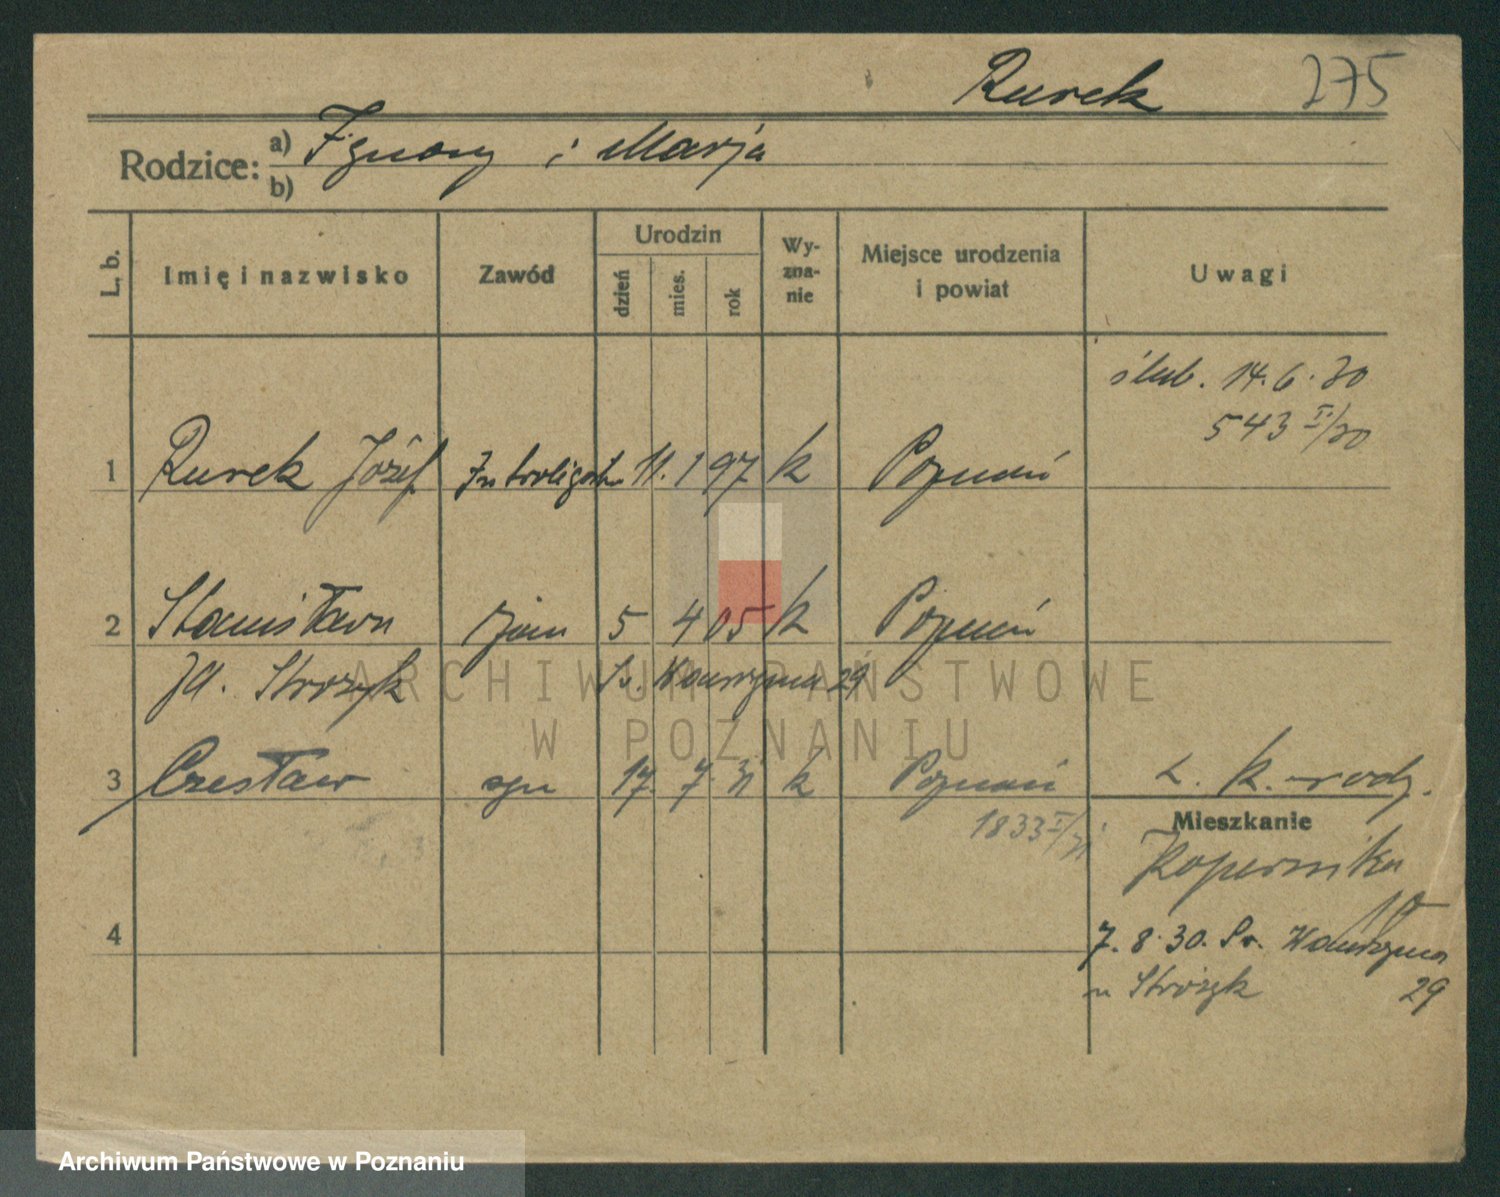 Rurek 275
Rodzice: a) Ignacy i Marja
b)
L. b. Imię i nazwisko Zawód Urodzin dzień mies. rok Wy-zna-nie Miejsce urodzenia i powiat Uwagi
ślub. 14.6.30
543 II/30
1 Rurek Józef Introligator 11. 1 97 k Poznań
2 Stanisława żona 5 4 05 k Poznań
Strózyk Św. Wawrzyńca 29
ARCHIWUM PAŃSTWOWE
W POZNANIU
3 Czesław syn 17. 7. 31 k Poznań k. rodz.
1833 I/31
Mieszkanie
Kopernika
4
7. 8. 30. Św. Wawrzyńca
u Strózyk 29
Archiwum Państwowe w Poznaniu